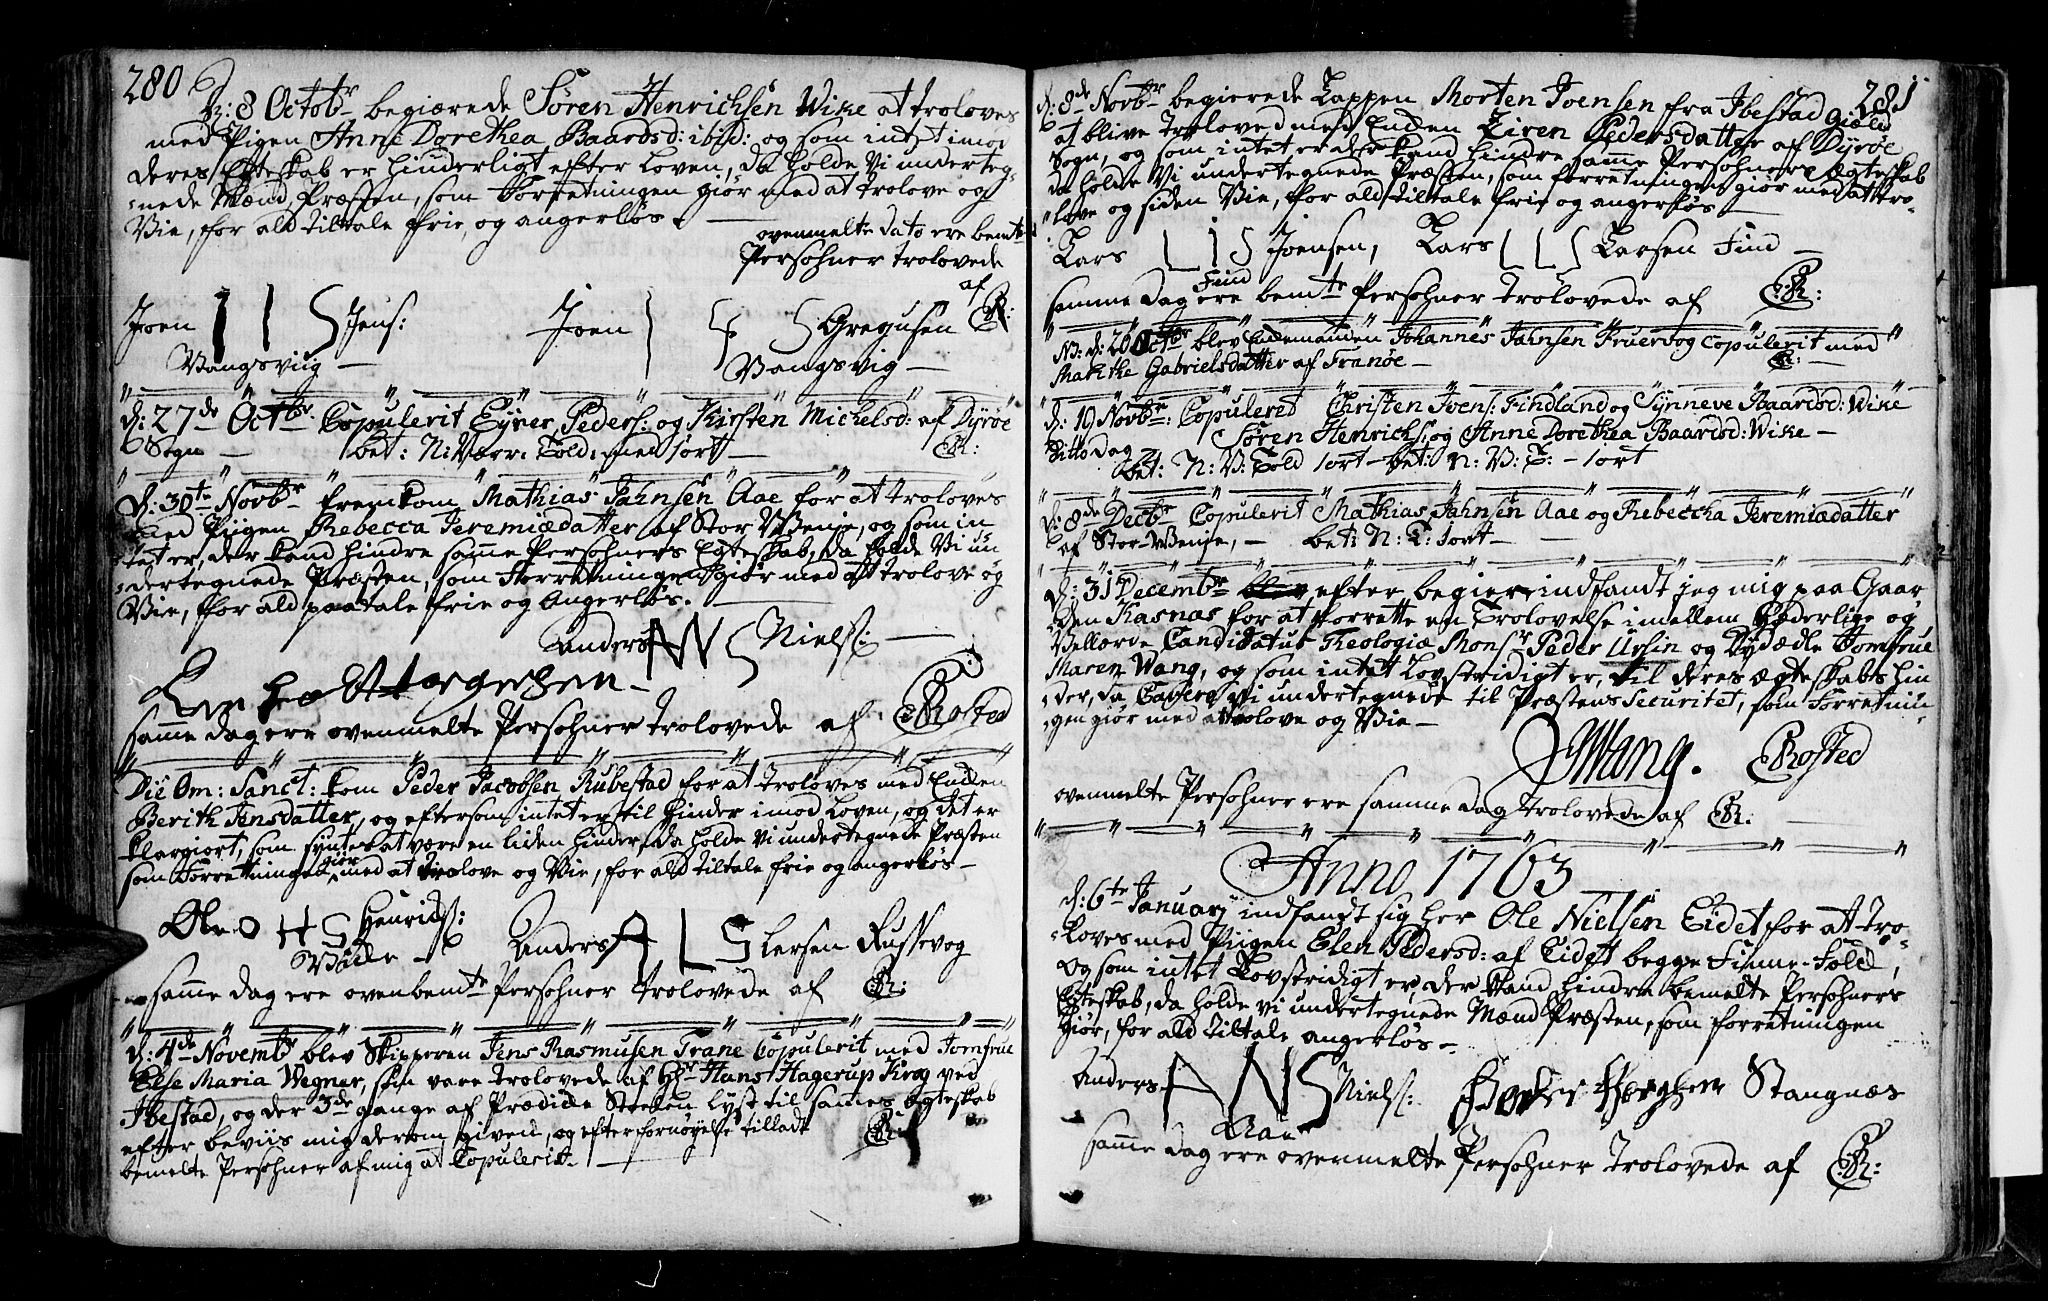 280
d: 8 Octobr begiærede Søren Henrichsen Wike at troloves
med Pigen Anne Dorethea Baardsd: ibid: og som intet imod
deres Egteskab er hinderligt efter Loven, da holde Vi underteg-
nede Mænd Præsten, som Forretningen giør med at trolove og
Vie, for ald tiltale frie, og angerløs.
ovenmelte dato ere bemte
Persohner trolovede
af CR:
Joen I I S Jens:
Joen I G S Gregusen
Vangsviig
Vangsvig
d: 27de Octbr Copulerit Eyner Peders: og Kirsten Michelsd: af Dyrøe
Sogn bet: N: Vær: Told: med 1 ort CR:
d: 30te Novbr fremkom Mathias Jahnsen Aae for at troloves
med Piigen Rebecca Jeremiædatter af Stor Wenje, og som in
tet er, der kand hindre samme Persohners Egteskab, da holde Vi un
dertegnede Præsten, som Forretningen giør med at trolove og
Vie, for ald paatale frie og Angerløs.
Anders A N S Nielss:
samme dag ere ovenmelte Persohner trolovede af CRosted
Die Om: Sanct: kom Peder Jacobsen Rubestad for at troloves med Enken
Berith Jensdatter, og eftersom intet er til hinder imod Loven, og det er
klargiort, som syntes at være en liden hinder, da holde Vi undertegnede Præsten
som Forretningen giør med at trolove og Vie, for ald tiltale frie og angerløs
Ole O H S Henrichs:
Anders A L S Lersen Russevog
samme dag ere ovenbemte Persohner trolovede af CR:
d: 4de Novembr blev Skipperen Jens Rasmusen Trane Copulerit med Jomfrue
Else Maria Wegner, som vare trolovede af Hr Hans Hagerup Krog ved
Ibestad, og der 3de gange af Prædike Stoelen lyst til sames Egteskab
efter beviis mig derom given, og efter fornøyelse tilladt
bemelte Persohner af mig at Copulerit. CR:
281
d: 8de Novbr begierede Lappen Morten Joensen fra Ibestad Gield
at blive troloved med Enken Ziren Pedersdatter af Dyrøe
Sogn, og som intet er der kand hindre samme Persohners Egteskab
da holde Vi undertegnede Præsten, som forretningen giør med at tro-
love og siden Vie, for ald tiltale frie og angerløs
Lars L I S Joensen, Lars L L S Larsen Find
Find
samme dag ere bemte Persohner trolovede af CR:
NB: d: 20 Octbr blev Enkemanden Johannes Jahnsen Kruervog Copulerit med
Marithe Gabrielsdatter af Tranøe CR:
d: 19 Novbr: Copuleret Christen Joens: Findland og Synneve Baardsd: Wike
Ditto dag Søren Henrichs: og Anne Dorethea Baardsd: Wike
bet: N: V: Told 1 ort bet: N: V: T: 1 ort
d: 8de Decbr Copulerit Mathias Jahnsen Aae og Rebeccka Jeremiædatter
af Stor-Wenje, bet: N: T: 1 ort
d: 31 Decembr efter begiering indfandt jeg mig paa Gaar
den Kasnæs for at forrette en Trolovelse imellem Hæderlige og
Vellærde Candidatus Theologiæ Monsr Peder Ursin og Dydædle Jomfrue
Maren Wang, og som intet Lovstridigt er, til deres ægteskabs hin
der, da Cavere Vi undertegnede til Præstens Securitet, som Forretnin
gen giør med at trolove og Vie
Wang. CRosted
ovenmelte Persohner ere samme dag trolovede af CR:
Anno 1763
d: 6te Januarj indfandt sig her Ole Nielsen Eidet for at tro-
loves med Piigen Elen Pedersd: af Eidet begge Finne-Folk,
og som intet Lovstridigt er, der kand hindre bemelte Persohners
Egteskab, da holde vi undertegnede Mænd Præsten, som forretningen
giør, for ald tiltale angerløs
Anders A N S Nielss:
Aae
Stangnæs
samme dag ere ovenmelte Persohner trolovede af CR: